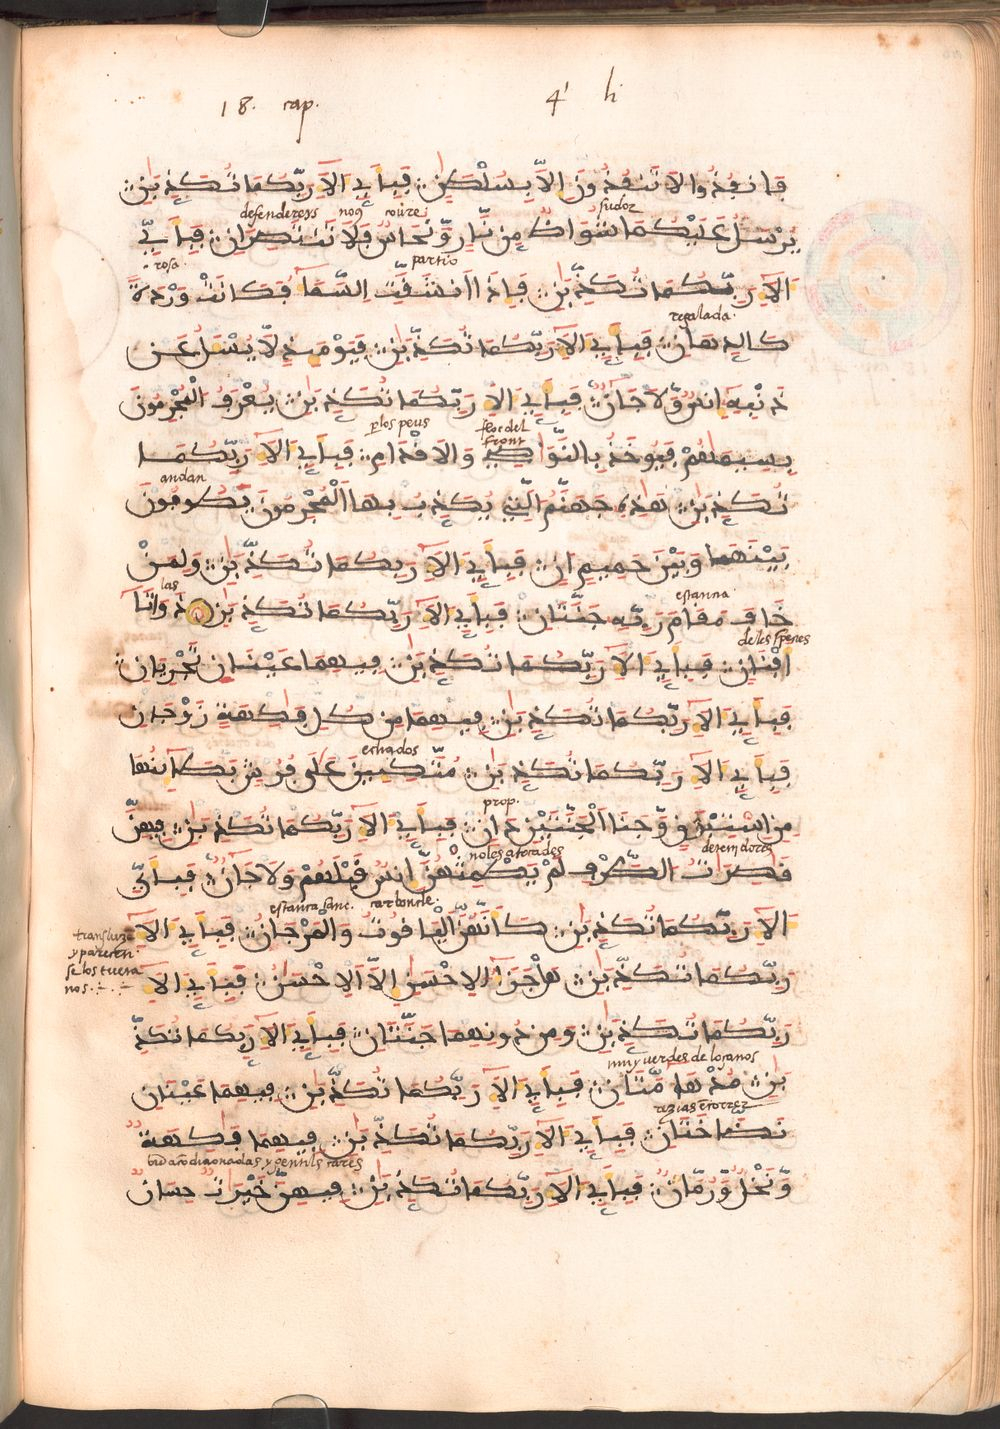 18. cap. 4 li
فانفذوا لا تنفذون إلا بسلطن فبأي ألاء ربكما تكذبن
defendereys nog coure fudoz
يرسل عليكما شواظ من نار ونحاس فلا تنتصران فبأي
rosa. partio
ءالاء ربكما تكذبن فإذا انشقت السماء فكانت وردة
regalada.
كالدهان فبأي ءالاء ربكما تكذبن فيومئذ لا يسئل عن
ذنبه إنس ولا جان فبأي ءالاء ربكما تكذبن يعرف المجرمون
plos peus flor del front
بسيمهم فيوخذ بالنوصي والاقدام فبأي ءالاء ربكما
andan
تكذبن هذه جهنم التي يكذب بها المجرمون يطوفون
بينها وبين حميم ان فبأي ءالاء ربكما تكذبن ولمن
las estanna
خاف مقام ربه جنتان فبأي ءالاء ربكما تكذبن ذواتا
de les
افنان فبأي ءالاء ربكما تكذبن فيهما عينان تجريان
فبأي ءالاء ربكما تكذبن فيهما من كل فكهة زوجان
echados
فبأي ءالاء ربكما تكذبن متكئين على فرش بطائنها
prop.
من استبرق وجنا الجنتين دان فبأي ءالاء ربكما تكذبن فيهن
no les atocades
قصرت الطرف لم يطمثهن إنس قبلهم ولا جان فبأي
estanca sanc. carboncle.
ءالاء ربكما تكذبن كأنهن الياقوت والمرجان فبأي ءالاء
y parecen
se los tuera
nos
ربكما تكذبن هل جزاء الاحسن إلا الاحسن فبأي ءالاء
ربكما تكذبن ومن دونهما جنتان فبأي ءالاء ربكما تكذ
muy verdes de loçanos
بن مدهامتان فبأي ءالاء ربكما تكذبن فيهما عينان
نضاختان فبأي ءالاء ربكما تكذبن فيهما فكهة
y gentils cares
ونخل ورمان فبأي ءالاء ربكما تكذبن فيهن خيرت حسان